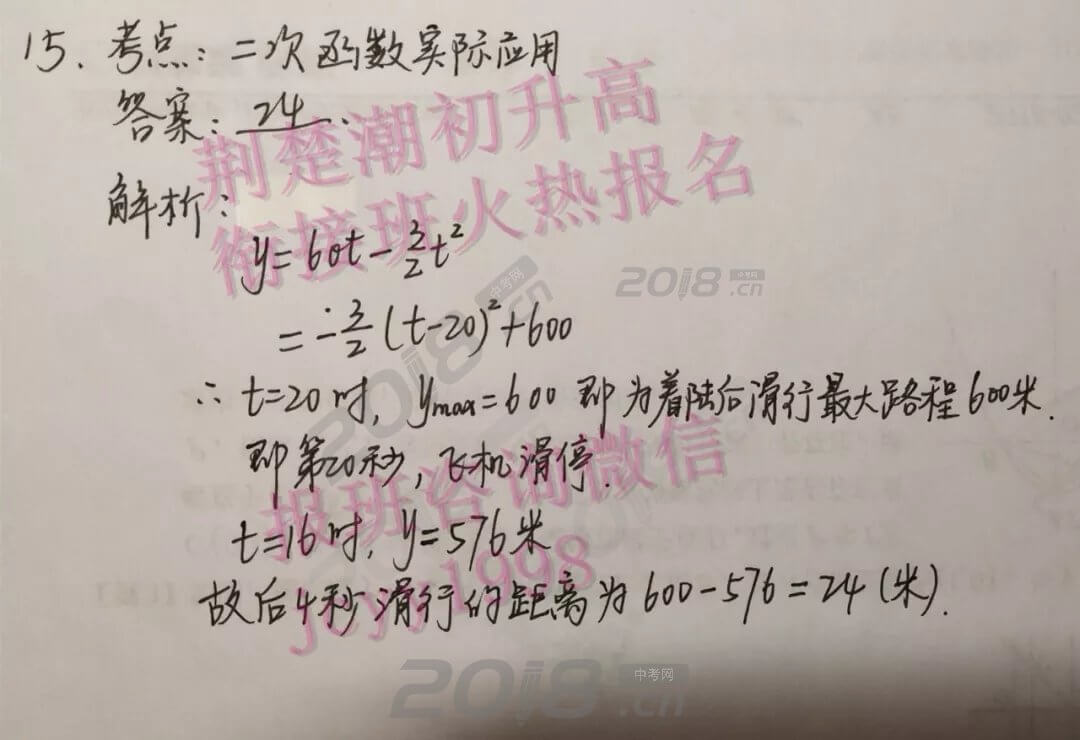 15. 考点: 二次函数实际应用
答案: 24.
解析:
y=60t-3/2t²
=-3/2(t-20)²+600
∴ t=20时, ymax=600 即为着陆后滑行最大路程600米.
即第20秒, 飞机滑停.
t=16时, y=576米
故后4秒滑行的距离为600-576=24(米).
荆楚潮初升高
衔接班火热报名
报班咨询微信
中考网
2018.cn
中考网
2018.cn
中考网
2018.cn